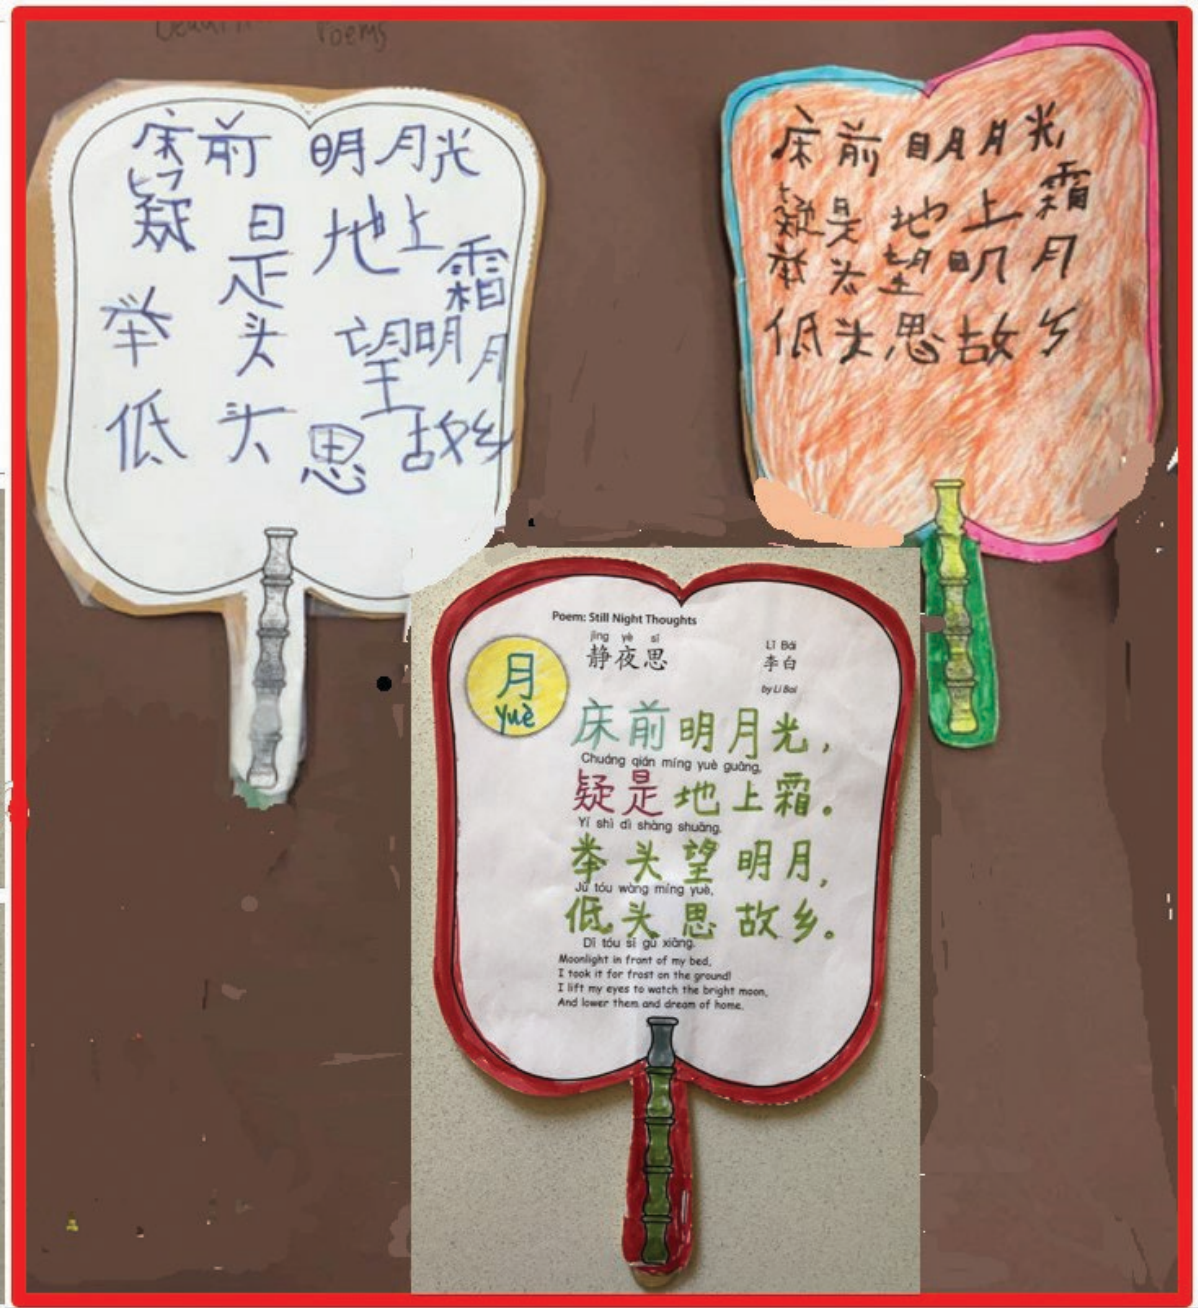 Poems
床前明月光
疑是地上霜
举头望明月
低头思故乡
床前明月光
疑是地上霜
举头望明月
低头思故乡
Poem: Still Night Thoughts
jìng yè sī
静夜思
Lǐ Bái
李白
by Li Bai
月
yuè
床前明月光,
Chuáng qián míng yuè guāng,
疑是地上霜。
Yí shì dì shàng shuāng.
举头望明月,
Jǔ tóu wàng míng yuè,
低头思故乡。
Dī tóu sī gù xiāng.
Moonlight in front of my bed,
I took it for frost on the ground!
I lift my eyes to watch the bright moon,
And lower them and dream of home.